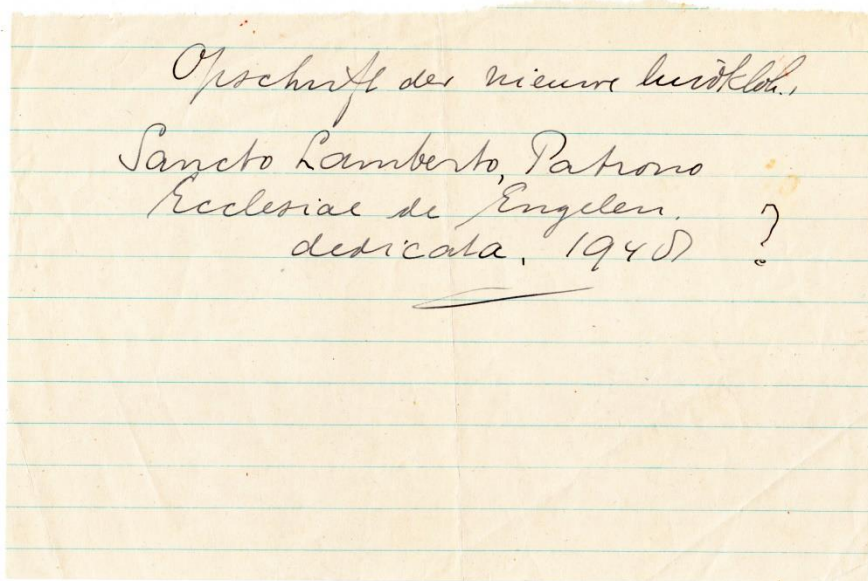 Opschrift der nieuwe luidklok.
Sancto Lamberto, Patrono
Ecclesiae de Engelen. ?
dedicata. 1948